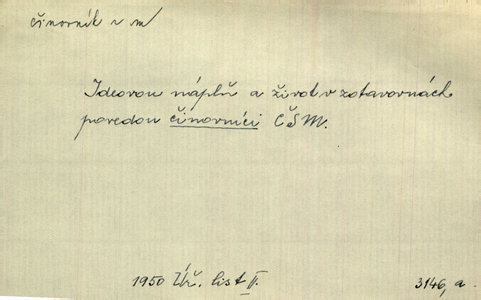 činorník v m
Ideovou náplň a život v zotavovnách
povedou činovníci ČSM.
1950 Úř. list II. 3146, a.